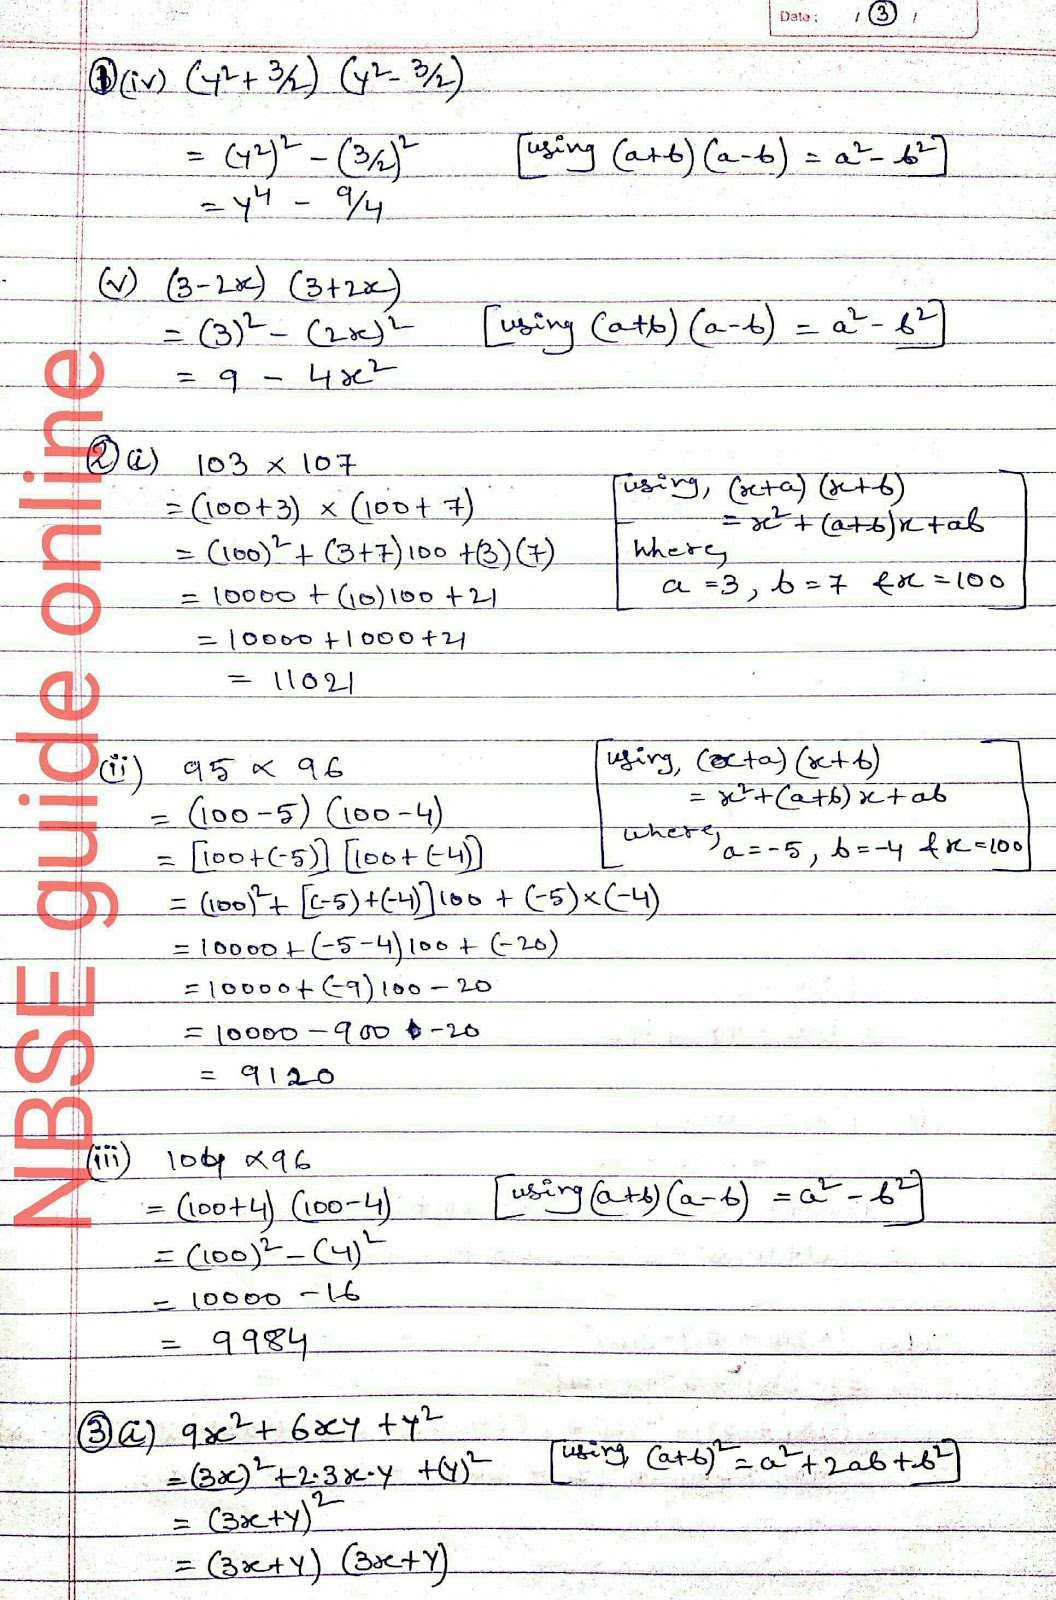 Date: / 3 /
1 (iv) (y²+3/2) (y²-3/2)
= (y²)² - (3/2)² [using (a+b)(a-b) = a²-b²]
= y⁴ - 9/4
(v) (3-2x) (3+2x)
= (3)² - (2x)² [using (a+b)(a-b) = a²-b²]
= 9 - 4x²
2 (i) 103 × 107
= (100+3) × (100+7)
= (100)² + (3+7)100 + (3)(7)
= 10000 + (10)100 + 21
= 10000 + 1000 + 21
= 11021
[using, (x+a)(x+b)
= x²+(a+b)x+ab
where,
a =3, b = 7 & x = 100]
(ii) 95 × 96
= (100-5) (100-4)
= [100+(-5)] [100+(-4)]
= (100)² + [(-5)+(-4)]100 + (-5)×(-4)
= 10000 + (-5-4)100 + (-20)
= 10000 + (-9)100 - 20
= 10000 - 900 -20
= 9120
[using, (x+a)(x+b)
= x²+(a+b)x+ab
where,
a=-5, b=-4 & x=100]
(iii) 104 × 96
= (100+4) (100-4) [using (a+b)(a-b) = a²-b²]
= (100)² - (4)²
= 10000 - 16
= 9984
3 (i) 9x² + 6xy + y²
= (3x)² + 2·3x·y + (y)² [using, (a+b)² = a²+2ab+b²]
= (3x+y)²
= (3x+y) (3x+y)
NBSE guide online